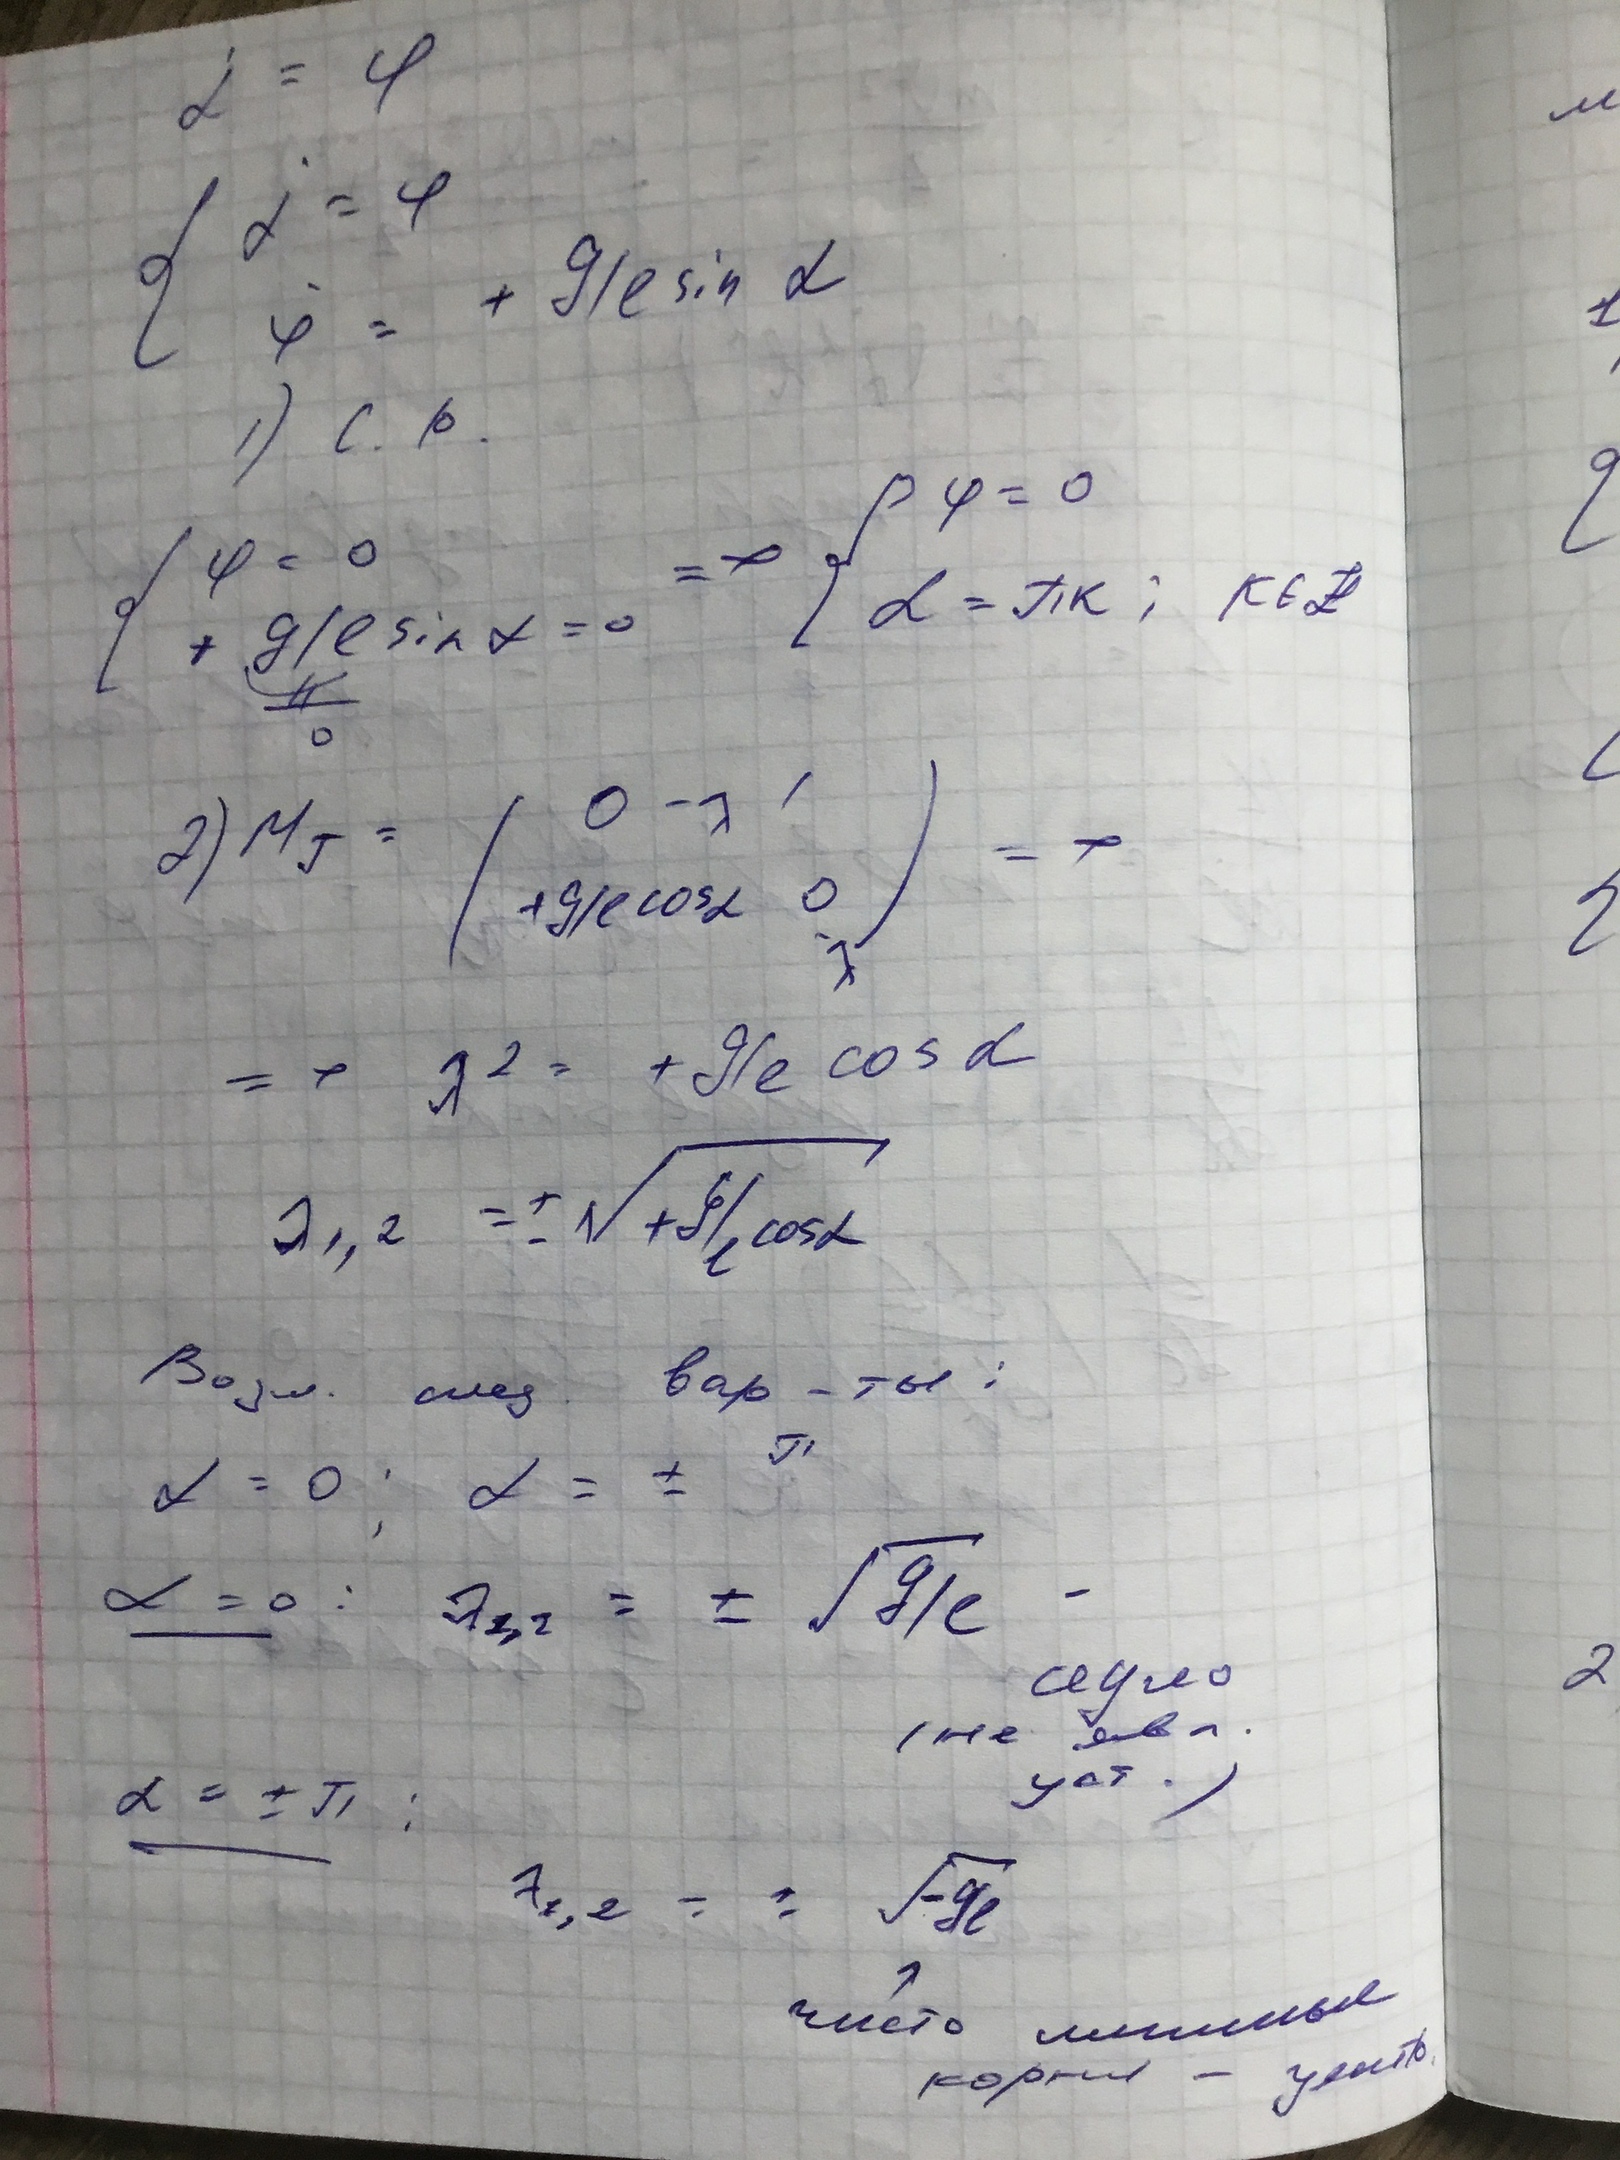 α̇ = φ
{ α̇ = φ
φ̇ = + g/l sin α
1) С. р.
{ φ = 0
+ g/l sin α = 0
≠
0
=> { φ = 0
α = πk ; k ∈ Z
2) M_J = ( 0 -λ 1
+g/l cosα 0 -λ ) =>
=> λ² = + g/l cos α
λ1,2 = ± √(+g/l cosα)
Возм. след. вар-ты:
α = 0 ; α = ± π
α = 0 : λ1,2 = ± √(g/l) -
седло
(не явл.
уст.)
α = ± π :
λ1,2 = ± √(-g/l)
↑
чисто мнимые
корни - центр.
м
1
{
{
2